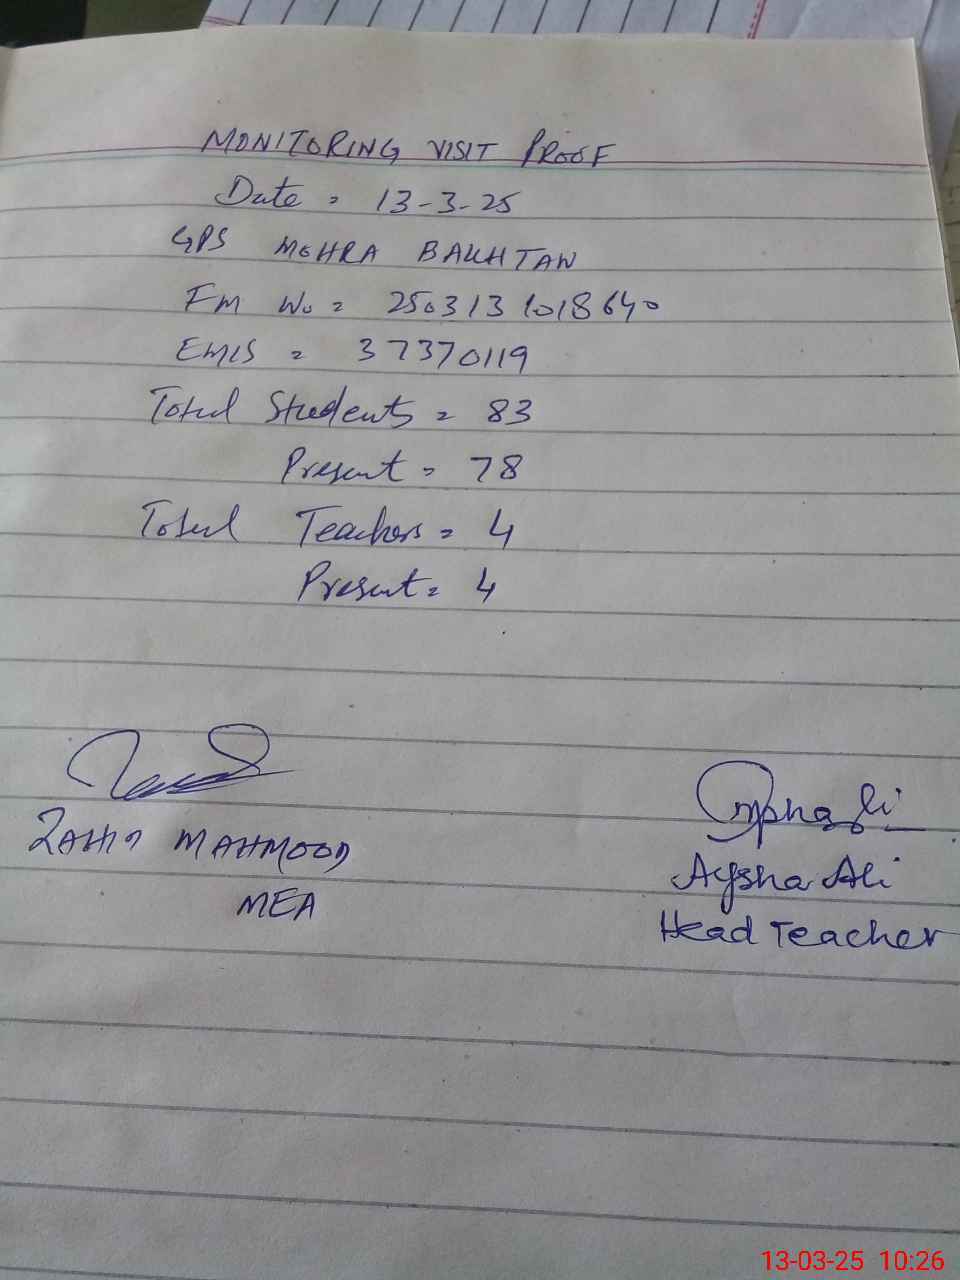 MONITORING VISIT PROOF
Date = 13-3-25
GPS MOHRA BAKHTAN
FM No = 2503131018640
EMIS = 37370119
Total Students = 83
Present = 78
Total Teachers = 4
Present = 4
MAHMOOD
MEA
Aysha Ali
Head Teacher
13-03-25 10:26